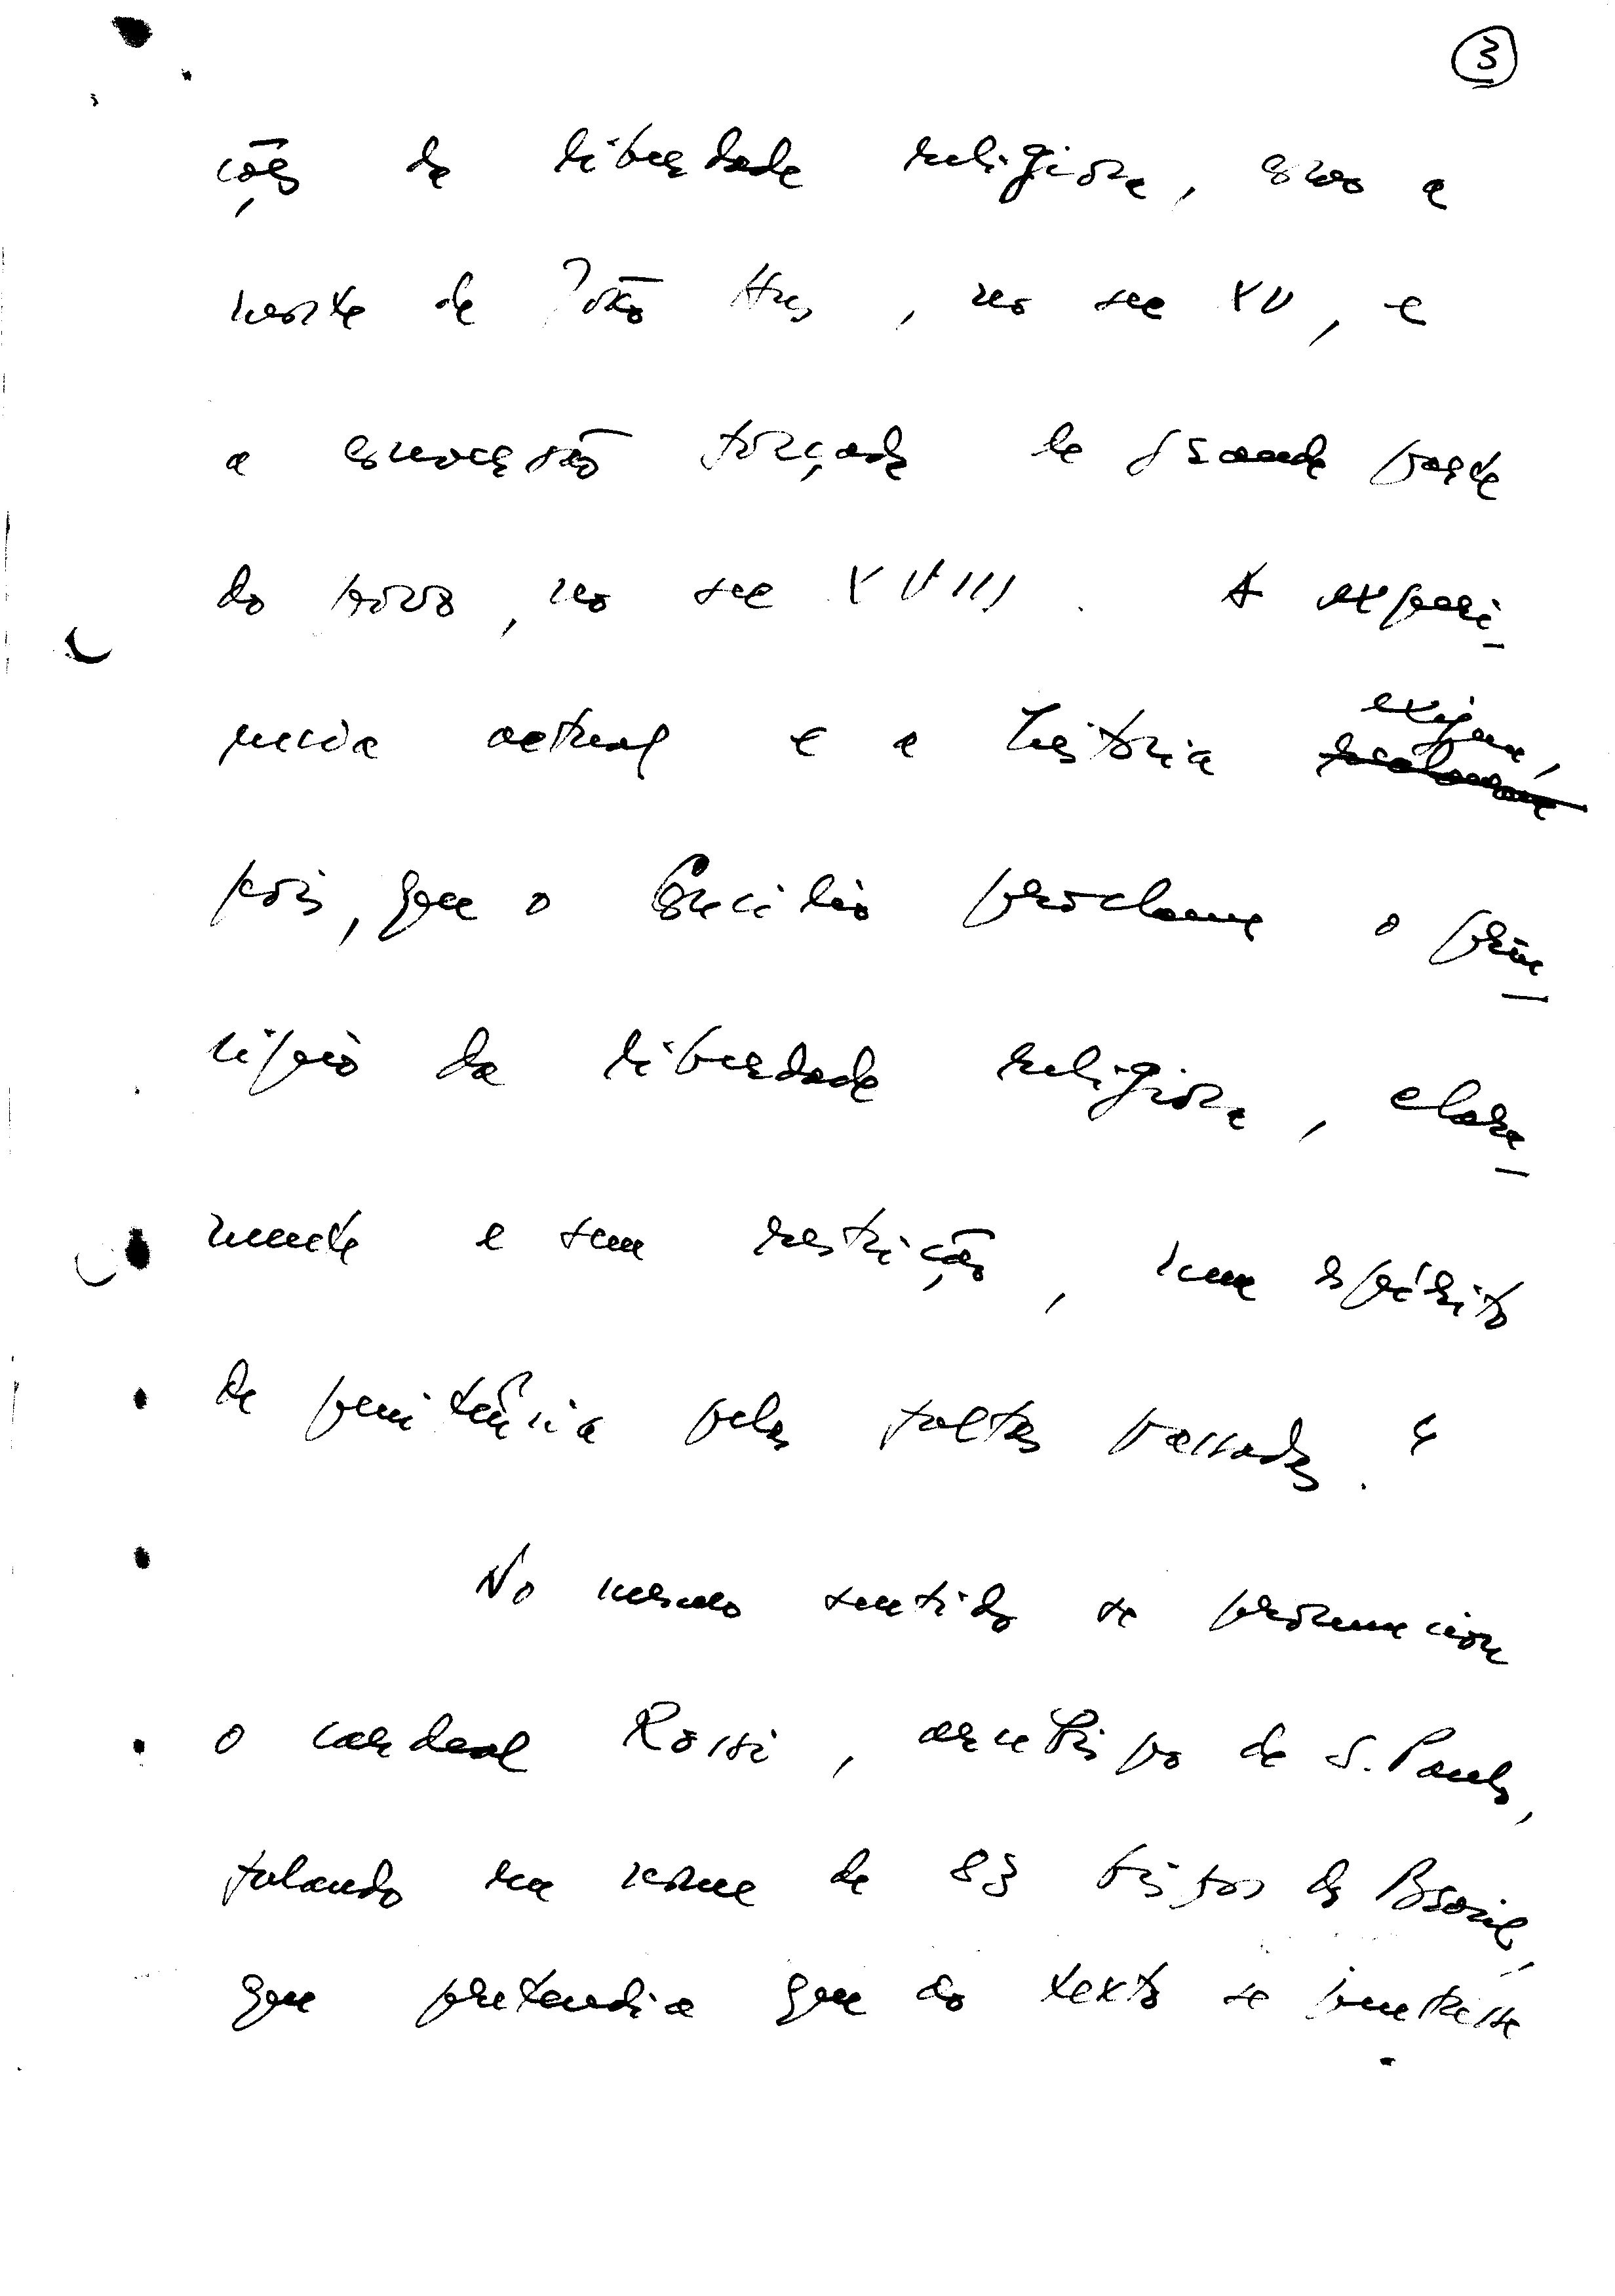 3
ções da liberdade religiosa, como a
morte de João Hus, no sec XV, e
a conversão forçada de grande parte
do povo, no sec XVIII. A experi-
encia actual e a história exigem,
pois, que o Concilio proclame o prin-
cipio da liberdade religiosa, clara-
mente e sem restrição, num espírito
de penitência pelas faltas passadas."
No mesmo sentido se pronunciou
o cardeal Rossi, arcebispo de S. Paulo,
falando em nome de 83 bispos do Brasil,
que pretendia que do texto se